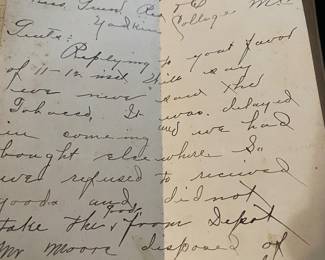 Yadkin College NC
Gents:
Replying to your favor
of 11-12 inst. Will say
we never saw the
Tobacco. It was delayed
in coming and we had
bought elsewhere. So
we refused to received
goods and did not
take the goods from Depot
Mr Moore disposed of